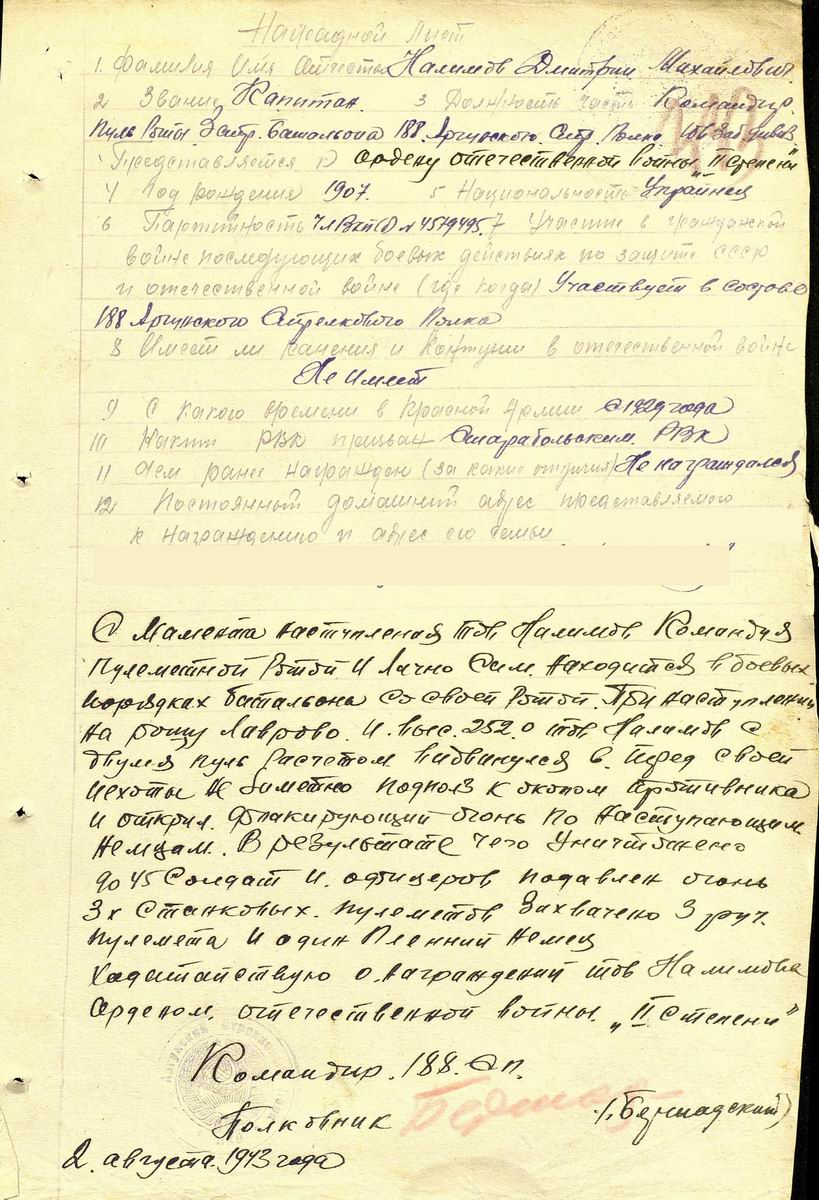 Наградной Лист
1. Фамилия Имя Отчество Налимов Дмитрий Михайлович.
2 Звание Капитан. 3 Должность часть Командир.
Пуль Роты 3 стр. Батальона 188 Аргунского Стр. Полка
Представляется к Ордену отечественной войны "II Степени"
4 Год рождения 1907. 5 Национальность Украинец
6 Партийность Чл ВКП(б) N 4579495. 7 Участие в гражданской
войне последующих боевых действиях по защите СССР
и отечественной войне (где когда) Участвует в составе
188 Аргунского Стрелкового Полка
8 Имеет ли ранения и контузии в отечественной войне
Не имеет
9 С какого времени в Красной Армии С 1929 года
10 Каким РВК призван Старабольским. РВК
11 Чем ранее награжден (за какие отличия) Не награждался
12 Постоянный домашний адрес представляемого
к награждению и адрес его семьи
С Мамента наступления тов Налимов Командуя
Пулеметной Ротой И Лично Сам. находится в боевых
порядках батальона со своей Ротой. При наступлении
на рощу Лаврово. И. выс. 252.0 тов Налимов с
двумя пуль расчетом выдвинулся в. перед своей
пехоты не заметно подполз к окопом противника
и открил. флакирующий огонь по наступающим.
Немцам. В результате чего Уничтожено
до 45 Солдат И. офицеров подавлен огонь
3х Станковых. пулеметов Захвачено 3 руч.
пулемета И один Пленний немец
Ходатайствую о. награждений тов Налимова
Орденом. отечественной войны. "II Степени"
Командир. 188. Сп.
Полковник
2. августа. 1943 года